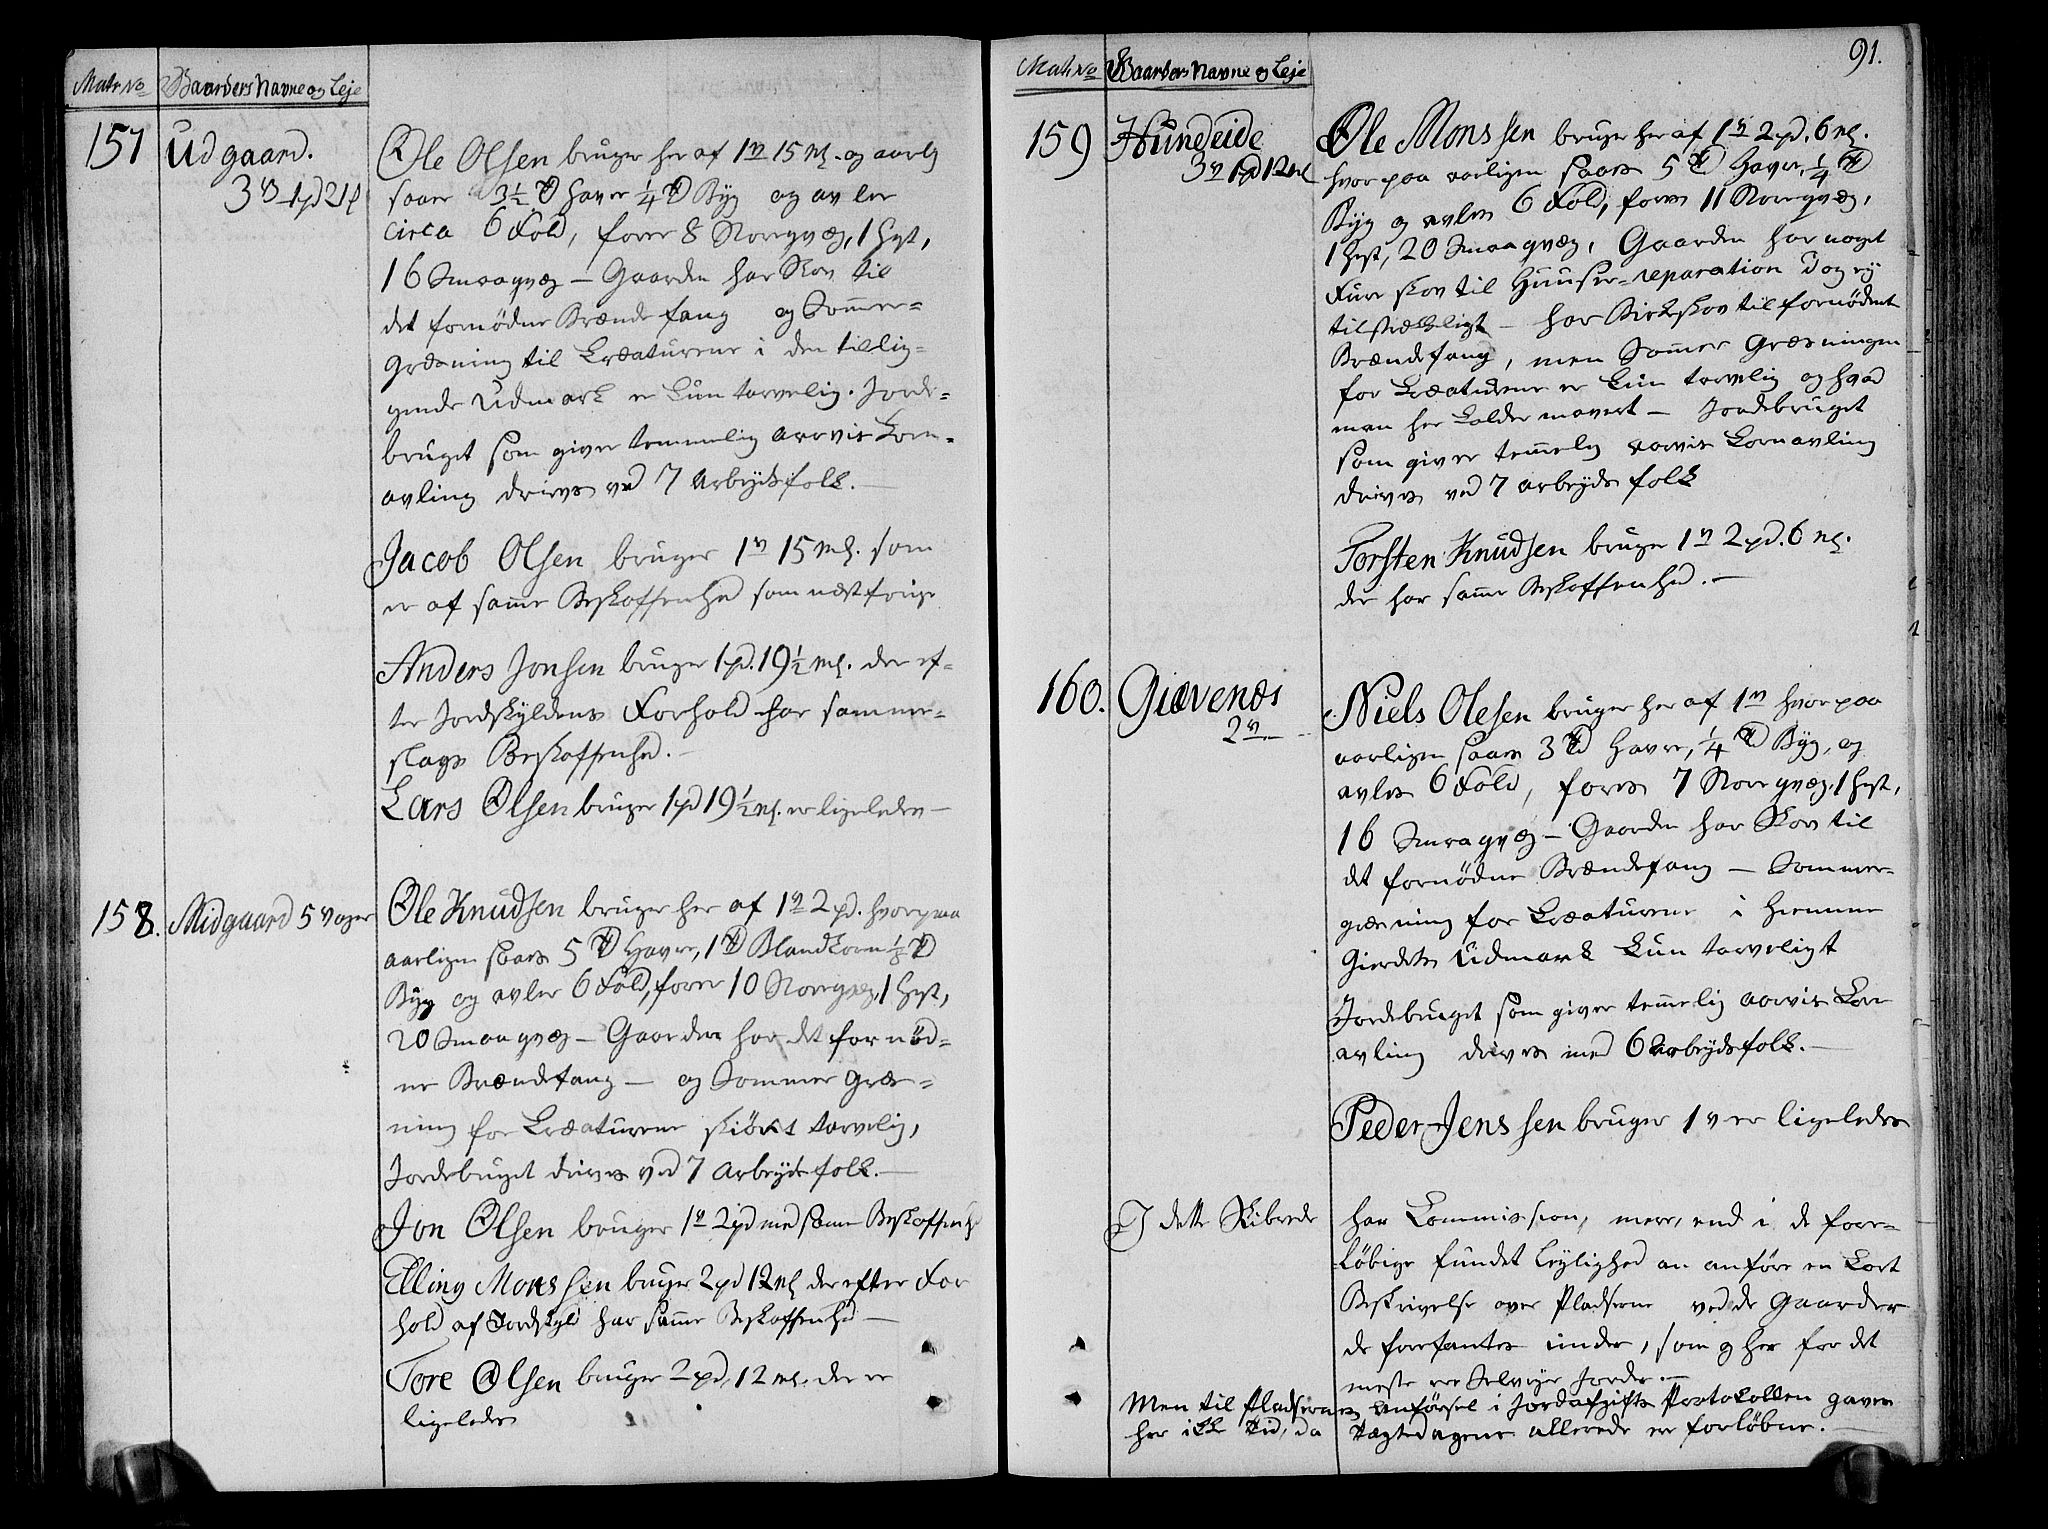 Matr No Gaardens Navne og Leje
157 Udgaard.
3 v 1 pd 21 ℔
Ole Olsen bruger her af 1 v 15 ml. og aarlig
saaer 3½ Td Havre ¼ Td Byg og avler
circa 6 Fold, foder 8 Storeqvæg, 1 Hest,
16 Smaaqvæg — Gaarden har Skov til
det fornødne Brændefang og Sommer=
Græsning til Creaturene i den tillig=
gende Udmark er kun tarvelig. Jorde=
bruget som giver temmelig aarvis Korn=
avling drives ved 7 Arbeydsfolk. —
Jacob Olsen bruger 1 v 15 ml. som
er af samme Beskaffenhed som næstforrige
Anders Jonsen bruger 1 pd. 19½ ml. der ef=
ter Jordskyldens Forhold har samme=
slags Beskaffenhed. —
Lars Olsen bruger 1 pd 19½ ml. er ligeledes —
158. Midgaard 5 Voger
Ole Knudsen bruger her af 1 v 2 pd. hvorpaa
aarligen saaes 5 Td Havre, 1 Td Blandkorn ⅛ Td
Byg og avler 6 Fold, foder 10 Storeqvæg, 1 Hest,
20 Smaaqvæg — Gaarden har det fornød=
ne Brændefang — og Sommer Græs=
ning for Creaturene skiønt tarvelig,
Jordebruget drives ved 7 Arbeydsfolk. —
Jon Olsen bruger 1 v 2 pd med samme Beskaffenh
Elling Monssen bruger 2 pd 12 ml der efter For
hold af Jordskyld har samme Beskaffenhed —
Tore Olsen bruger 2 pd, 12 ml. der er
ligeledes
91.
Matr No Gaardens Navne og Leje
159 Hundeide
3 v 1 pd 12 ml
Ole Monssen bruger her af 1 v 2 pd. 6 ml.
hvorpaa aarligen saaes 5 Td Havre, ¼ Td
Byg og avles 6 Fold, fores 11 Storeqvæg,
1 Hest, 20 Smaaqvæg, Gaarden har noget
Fure skov til Huuser=reparation dog ej
tilstrækkeligt — har Birkskov til fornødent
Brændefang, men Sommer Græsningen
for Creaturene er kun tarvelig og hvad
man her kalder mavert — Jordebruget
som giver temmelig aarvis Kornavling
drives ved 7 arbeyds folk
Torsten Knudsen bruger 1 v 2 pd. 6 ml.
der har samme Beskaffenhed. —
160. Giævenæs
2 v —
Niels Olesen bruger her af 1 v hvorpaa
aarligen saaes 3 Td Havre, ¼ Td Byg, og
avles 6 Fold, fores 7 Storeqvæg, 1 Hest,
16 Smaaqvæg — Gaarden har Skov til
det fornødne Brændefang — Sommer=
græsning for Creaturene i Hiemme
Gierdets Udmark kun tarveligt
Jordebruget som giver temmelig aarvis Korn
avling drives med 6 Arbeydsfolk. —
Peder Jenssen bruger 1 v er ligeledes
I dette Skibrede har Commission, mere, end i de fore=
løbige fundet Leylighed an anføre en kort
Beskrivelse over Pladserne ved de Gaarder
de forefantes under, som og her for det
meste ere Selveyer Jorder. —
Men til Pladsernes Anførsel i Jordafgifts Protocollen gaves
her ikke Tid, da Tægtedagene allerede ere forløbne. —